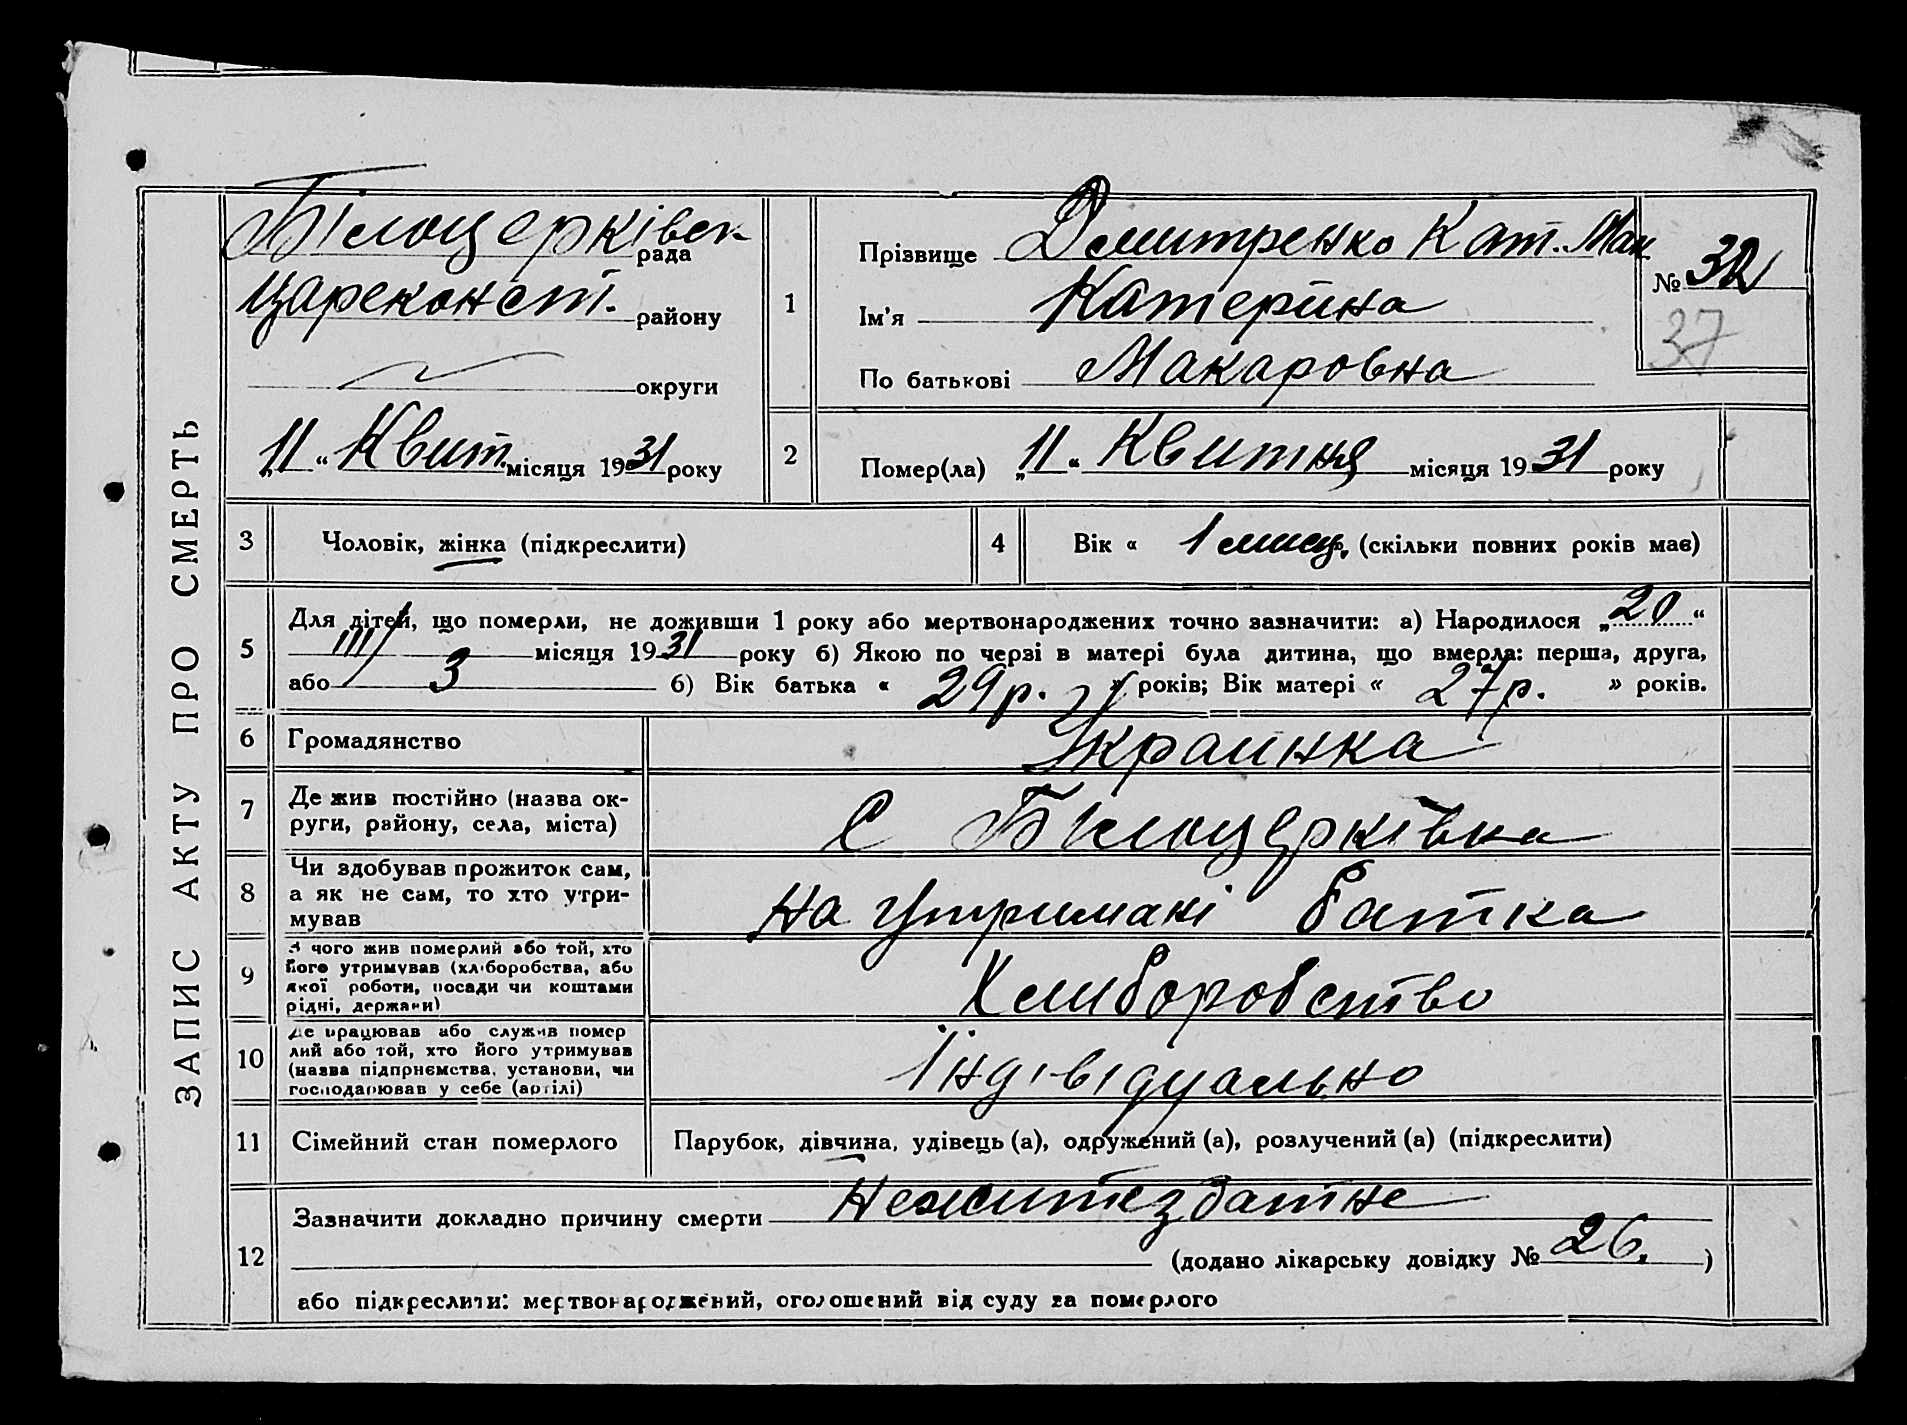 ЗАПИС АКТУ ПРО СМЕРТЬ
Білоцерківськ рада
Цареконст. району
округи
„11“ Квит. місяця 1931 року
1
Прізвище Дмитренко Кат. Мак
Ім'я Катерина
По батькові Макаровна
№ 32
37
2
Помер(ла) „11“ Квитня місяця 1931 року
3
Чоловік, жінка (підкреслити)
4
Вік « 1 мисяц. (скільки повних років має)
5
Для дітей, що померли, не доживши 1 року або мертвонароджених точно зазначити: а) Народилося „20“
III місяця 1931 року б) Якою по черзі в матері була дитина, що вмерла: перша, друга,
або 3 б) Вік батька « 29р. » років; Вік матері « 27р. » років.
6
Громадянство
Украинка
7
Де жив постійно (назва ок-
руги, району, села, міста)
С Білоцерківка
8
Чи здобував прожиток сам,
а як не сам, то хто утри-
мував
на утримані батка
9
З чого жив померлий або той, хто
його утримував (хліборобства, або
якої роботи, посади чи коштами
рідні, держави)
Хлиборобство
10
Де працював або служив помер
лий або той, хто його утримував
(назва підприємства, установи, чи
господарював у себе (артілі)
Індівідуально
11
Сімейний стан померлого
Парубок, дівчина, удівець (а), одружений (а), розлучений (а) (підкреслити)
12
Зазначити докладно причину смерти нежитездатне
(додано лікарську довідку № 26. )
або підкреслити: мертвонароджений, оголошений від суду за померлого